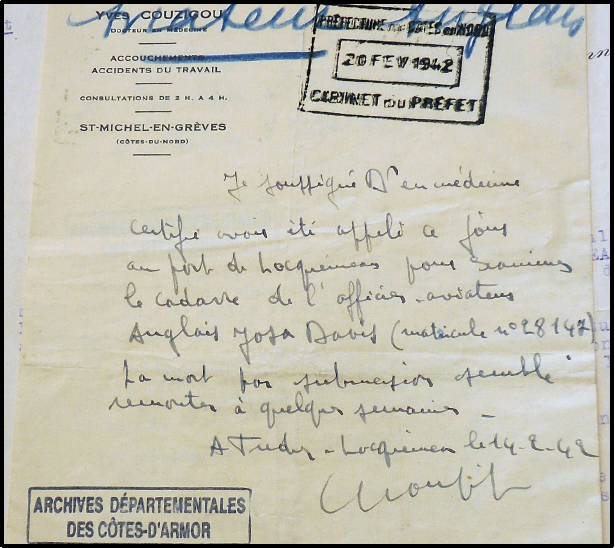 Aviateur Anglais
YVES COUZIGOU
DOCTEUR EN MÉDECINE
ACCOUCHEMENTS
ACCIDENTS DU TRAVAIL
CONSULTATIONS DE 2 H. A 4 H.
ST-MICHEL-EN-GRÈVES
(CÔTES-DU-NORD)
PRÉFECTURE DES CÔTES DU NORD
20 FEV 1942
CABINET DU PRÉFET
Je soussigné Dr en médecine
certifie avoir été appelé ce jour
au port de Locquémeau pour examiner
le cadavre de l'officier-aviateur
Anglais Josa Davis (matricule n° 28147)
La mort par submersion semble
remonter à quelques semaines _
A Trédrez-Locquémeau le 14-2-42
ARCHIVES DÉPARTEMENTALES
DES CÔTES-D'ARMOR